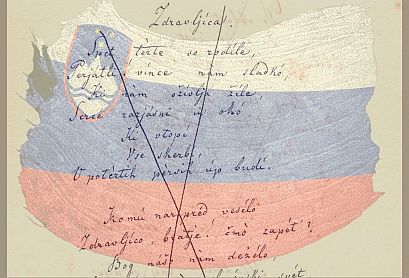 Zdravljíca.
Spet terte so rodíle,
Perjatli vince nam sladkó,
Ki nam oživlja žíle,
Serce razjásni in okó
Ki vtopí
Vse skerbí,
V potértih persih úp budí.
Komú narpred vesélo
Zdravljíco, bratje! čmò zapét'?
Bog našo nam dežélo